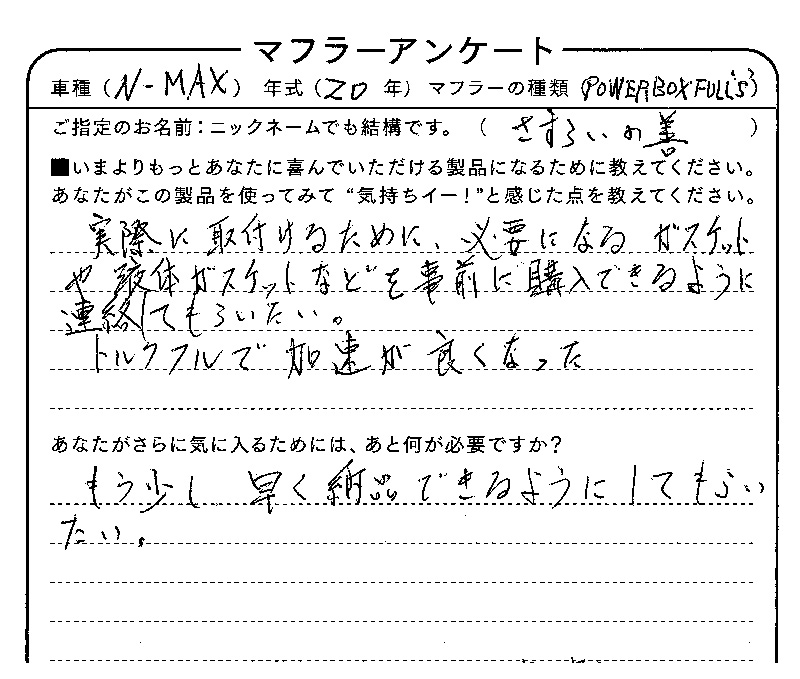 マフラーアンケート
車種（N-MAX） 年式（20年）マフラーの種類（POWERBOXFULL"S"）
ご指定のお名前：ニックネームでも結構です。（さすらいの善）
■いまよりもっとあなたに喜んでいただける製品になるために教えてください。
あなたがこの製品を使ってみて“気持ちイー！”と感じた点を教えてください。
実際に取付けるために、必要になるガスケット
や液体ガスケットなどを事前に購入できるように
連絡してもらいたい。
トルクフルで加速が良くなった
あなたがさらに気に入るためには、あと何が必要ですか？
もう少し早く納品できるようにしてもらい
たい。